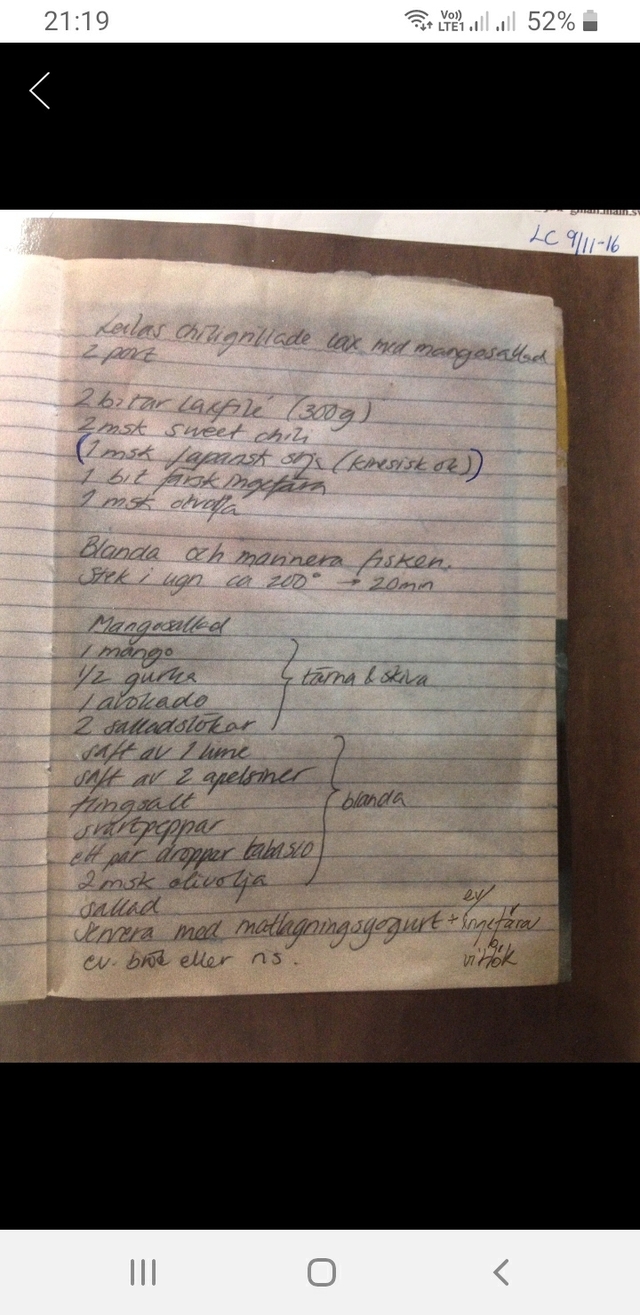 21:19
Vo)) LTE1 52%
LC 9/11-16
Leilas chiligrillade lax med mangosallad
2 port
2 bitar laxfilé (300g)
2 msk sweet chili
(1 msk Japansk soja (kinesisk ok))
1 bit färsk ingefära
1 msk olivolja
Blanda och marinera fisken.
Stek i ugn ca 200° → 20min
Mangosallad
1 mango
1/2 gurka
tärna & skiva
1 avokado
2 salladslökar
saft av 1 lime
saft av 2 apelsiner
flingsalt
blanda
svartpeppar
ett par droppar tabasco
2 msk olivolja
sallad
Servera med matlagningsyogurt + ev ingefära
vitlök
ev. bröd eller ris.